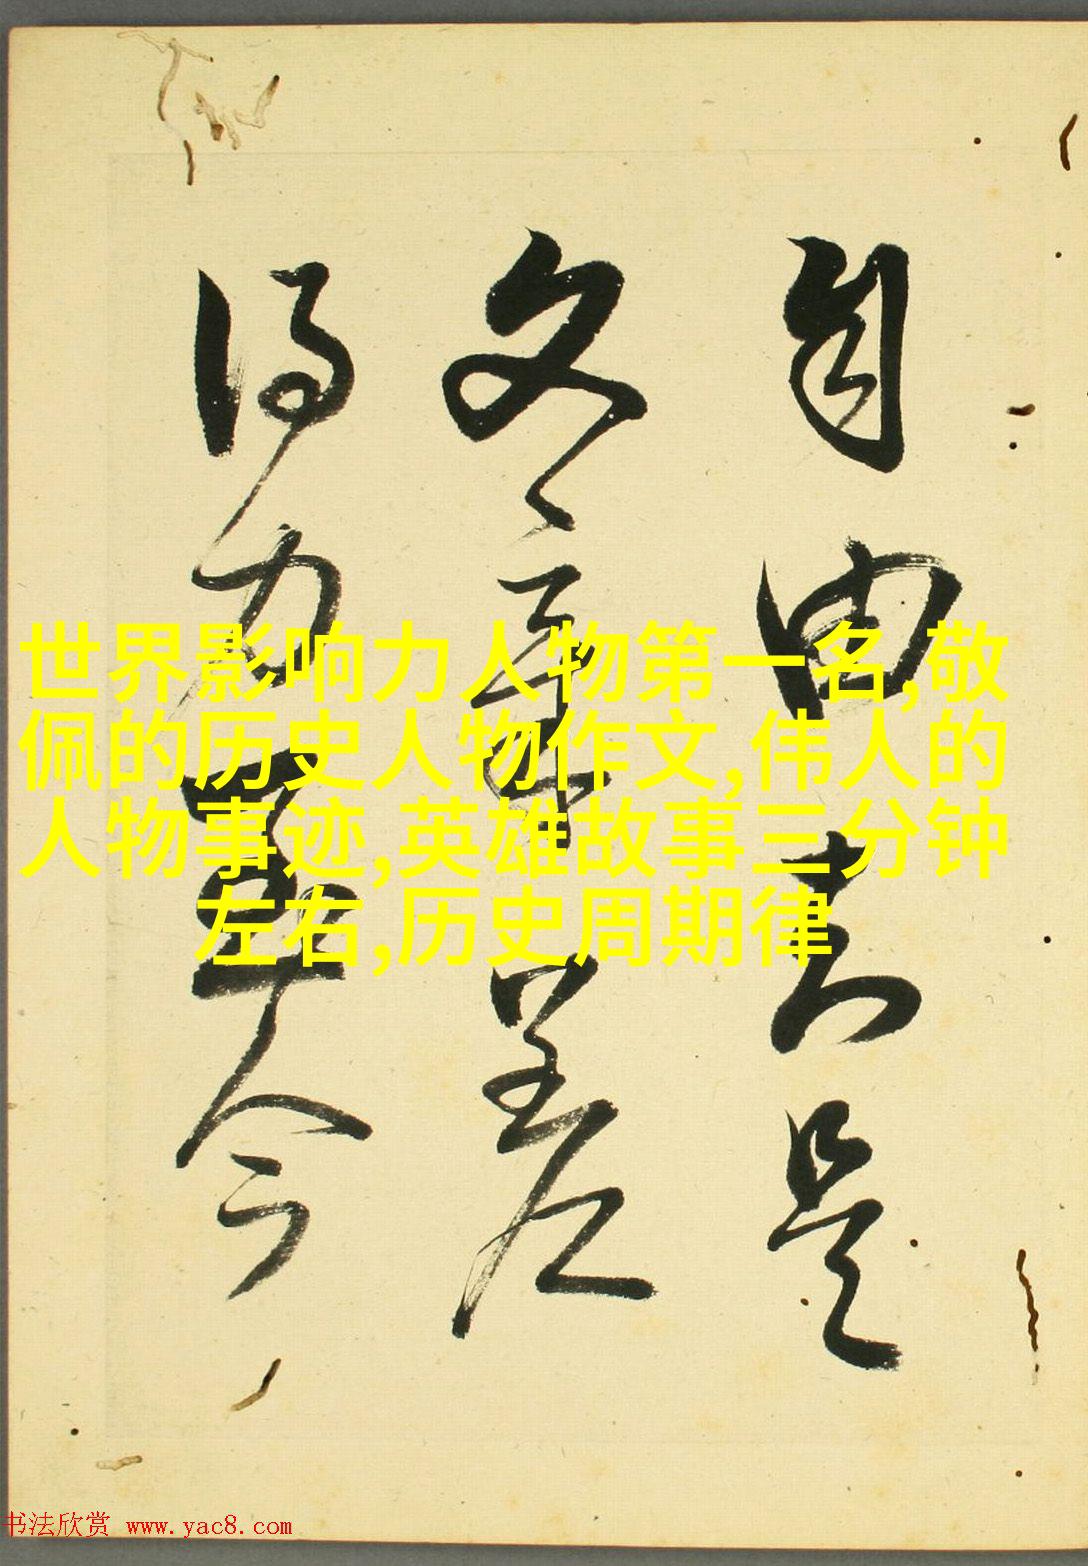 自由是
文章差
得力今
世界影响力人物第一名,敬
佩的历史人物作文,伟人的
人物事迹,英雄故事三分钟
左右,历史周期律
书法欣赏 www.yac8.com